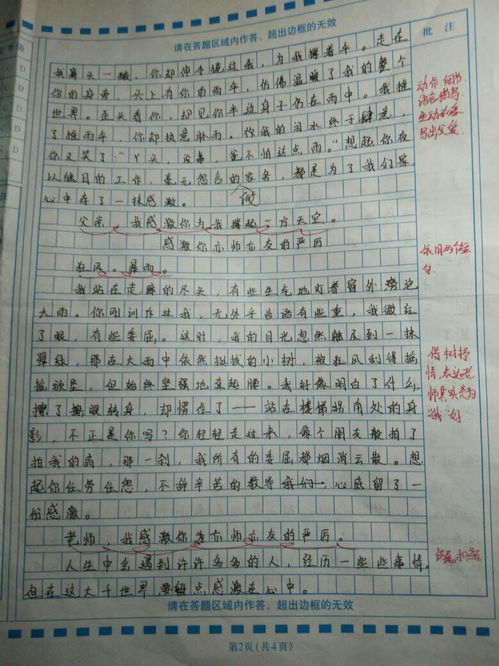 请在答题区域内作答，超出边框的无效
批 注
我鼻头一酸，你却伸手揽过我，为我撑着伞。走在
你的身旁，头上有你的雨伞，仿佛温暖了我的整个
世界。歪头看你，却见你半边身子仍在雨中。我推
了推雨伞，你却执意淋雨。你我的泪水终于肆意，
你又笑了“丫头，没事，爸不怕这点雨。”想起你夜
以继日的工作，毫无怨言的家务，都是为了我们家
心中存了一抹感激。
父亲，我感激你为我撑起一方天空。
做
感激你亦师亦友的严厉
狂风。暴雨。
我站在走廊的尽头，有些生气地盯着窗外
大雨。你刚训斥过我，无外乎
了眼，有些委屈。这时，我的目光忽然触及到一抹
翠绿，那在大雨中依然挺拔的小树，被狂风刮得摇
摇欲坠，但始终坚强地直起腰。我好像明白了什么，
擦了擦眼转身，却愣在了——站在楼梯拐角处的身
影，不正是你吗？你轻轻走过来，像个朋友般拍了
拍我的肩，那一刹，我所有的委屈都烟消云散。想
起你任劳任怨，不辞辛苦的教导我们，心底留了一
份感激。
老师，我感激你亦师亦友的严厉。
人生中会遇到许许多多的人，经历一些些事情。
但在这大千世界，要留点感激在心中。
动作 细节
生动形象
写出父爱
借小树抒
情，表达老
师其实是为
我好
请在答题区域内作答，超出边框的无效
第2页（共4页）